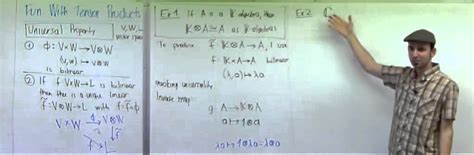 Fun With Tensor Products
Universal Property
V, W, L vector space
① f: V×W → V⊗W
(v,w) ↦ v⊗w
is bilinear
② If f: V×W → L is bilinear
then there is a unique linear
f̃: V⊗W → L with f = f̃∘
V×W → V⊗W
f ↘ ↓ f̃
L
Ex 1 If A is a 𝕂-algebra, then
𝕂⊗A ≅ A as 𝕂-algebras
To produce f̃: 𝕂⊗A → A, I use
f: 𝕂×A → A
(λ,a) ↦ λa
invoking universality
Inverse map:
g: A → 𝕂⊗A
a ↦ 1⊗a
λa ↦ 1⊗λa = λ⊗1
Ex 2 ℂ